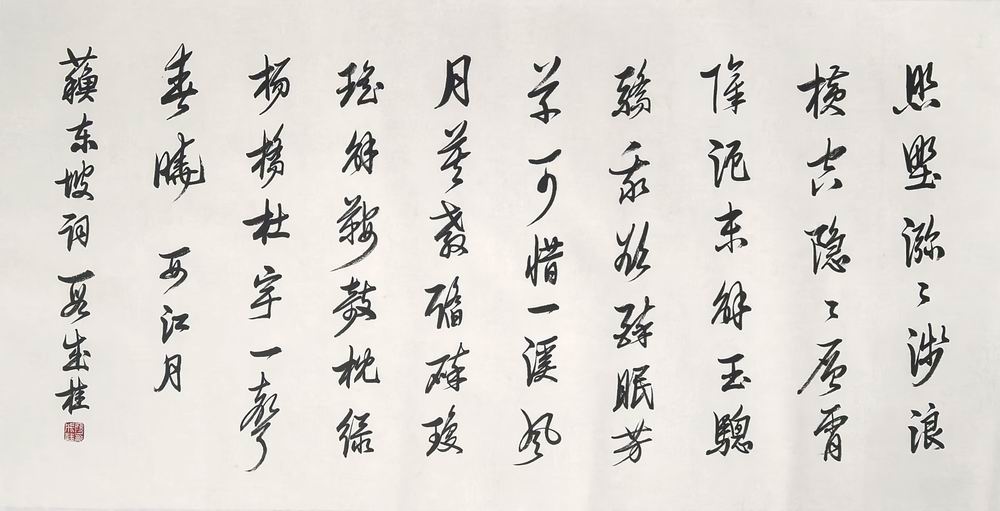 照野㳽〻浅浪
横空隐〻层霄
障泥未解玉骢
骄我欲醉眠芳
草可惜一溪风
月莫教踏碎琼
瑶解鞍欹枕绿
杨桥杜宇一声
春晓 西江月
苏东坡词 成桂